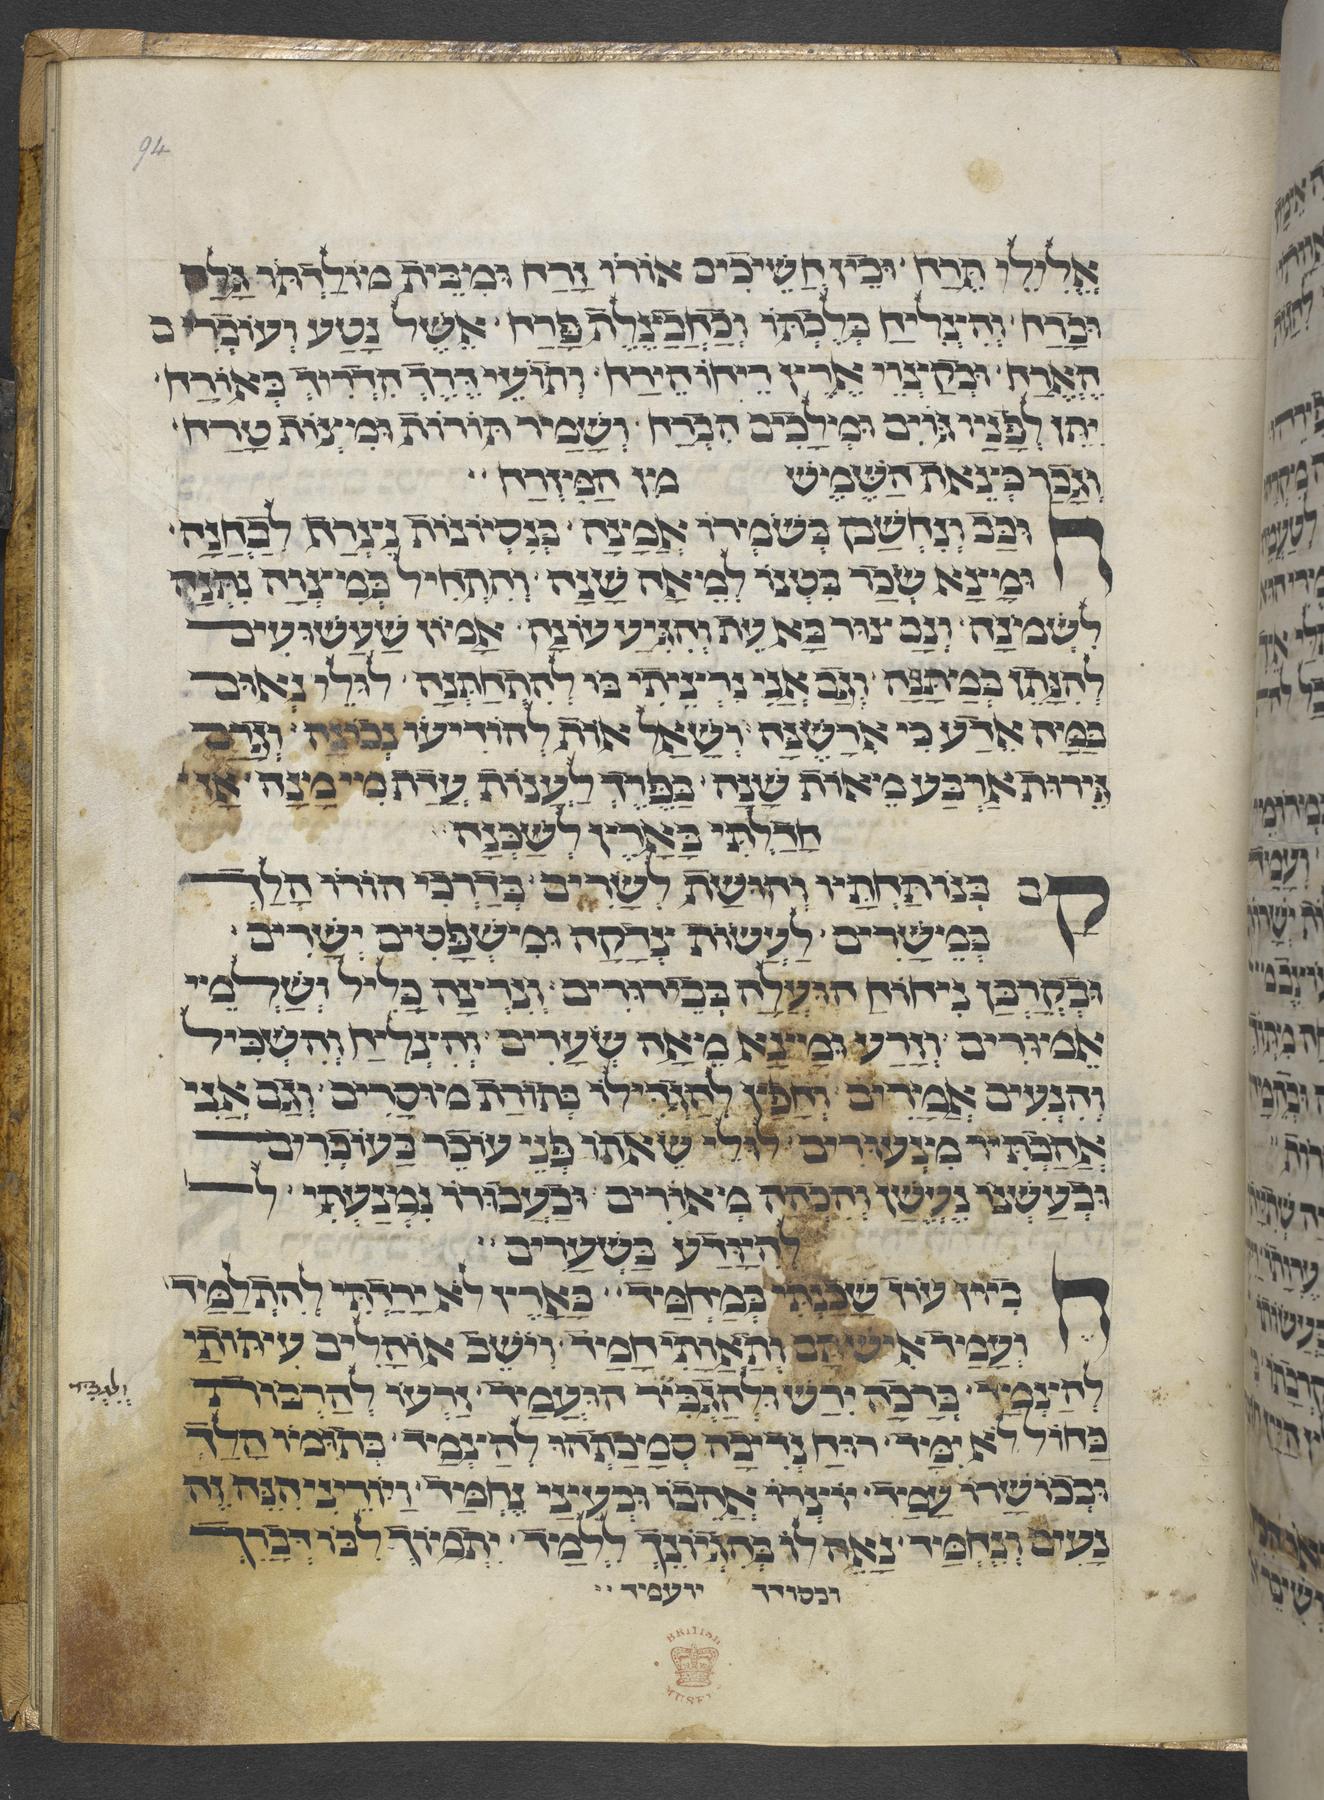 94
אֱלִילֵי תֶרַח · וּבֵין חֲשֵׁיכִים אוֹרוֹ זָרַח וּמִבֵּית מוֹלַדְתּוֹ
וּבָרַח · וְהִצְלִיחַ בְּלֶכְתּוֹ וְכַחֲבַצֶּלֶת פָּרַח · אֶשֶׁל נָטַע וְעוֹבְרִים
הֶאֱרַח · וּבְקַצְוֵי אֶרֶץ רֵיחוֹ הֵירַח · וְתוֹעֵי דֶרֶךְ הִדְרִיךְ בְּאוֹרַח ·
יִתֵּן לְפָנָיו גּוֹיִם וּמְלָכִים הִכְרַח · וְשָׁמַר תּוֹרוֹת וּמִצְוֹת טָרַח ·
וְזָכַר בְּצֵאת הַשֶּׁמֶשׁ מִן הַמִּזְרָח ··
וּבַּב וְנֶחְשַׁק בְּשׁוֹמְרוֹ אֲמָנָה · בְּנִסְיוֹנוֹת נִצְרַף לְבָחֳנָה ·
וּמָצָא שְׂכַר בִּטְנוֹ לְמֵאָה שָׁנָה · וְהִתְחִיל בְּמִצְוָה
לִשְׁמֹנָה · וְגַם צוּר בָּא עֵת וְהִגִּיעַ עוֹנָה · אָמוֹן שַׁעֲשׁוּעִים
לְהִנָּתֵן בְּמַתָּנָה · וְגַם אֲנִי נִרְצֵיתִי בּוֹ לְהִתְחַתְּנָה · לוּלֵי נְאוּם
בַּמָּה אֵדַע כִּי אִרָשֶׁנָּה · וְשָׁאַל אוֹת לְהוֹדִיעוֹ נְכוֹנָה ·
גֵּירוּת אַרְבַּע מֵאוֹת שָׁנָה · בַּפֶּרֶךְ לְעַנּוֹת עֲדַת מִי מָנָה · אָז
חָדַלְתִּי בָּאָרֶץ לְשָׁכְנָה ··
קם בְּנוֹ תַּחְתָּיו וְהוּשַׁת לְשָׂרִים · בְּדַרְכֵי הוֹרוֹ הָלַךְ
בְּמֵישָׁרִים · לַעֲשׂוֹת צְדָקָה וּמִשְׁפָּטִים יְשָׁרִים ·
וּכְקָרְבַּן נִיחוֹחַ הוּעֲלָה בְּבֵירוּרִים · וְנִרְצָה כָּלִיל וְשַׁלְמֵי
אֵמוּרִים · וְזָרַע וּמָצָא מֵאָה שְׁעָרִים · וְהִצְלִיחַ וְהִשְׂכִּיל
וְהִנְעִים אֲמָרִים · וְחָפֵץ לְהַגְדִּילוֹ בְּתוֹרַת מוּסָרִים · וְגַם אֲנִי
אֲהַבְתִּיו מִנְּעוּרִים · לוּלֵי שְׂאֵתוֹ פְּנֵי עוֹכֵר בַּעוֹכְרִים
וּבַעֲשָׁנוֹ נֶעֱשַׁן וְהִכְהָה מְאוֹרִים · וּבַעֲבוּרוֹ נִמְנַעְתִּי · ל
לְהִוָּדַע בַּשְּׁעָרִים ··
כְּיוֹן עוֹד שָׁכַנְתִּי בְּמַחְמָד · בָּאָרֶץ לֹא יָרַדְתִּי לְהִתְלַמָּד
וְעָמַד אִישׁ תָּם וְתַאֲוָתִי חָמַד · יוֹשֵׁב אוֹהָלִים עִיתּוֹתַי
לְהִצָּמֵד · בְּרָכָה יָרַשׁ וְלִהְגְבִּיר הוּעֲמַד · זַרְעוֹ לְהַרְבּוֹת
בַּחוֹל לֹא יִמַּד · רוּחַ נְדִיבָה סְמָכַתְהוּ לְהַצְמִד · בְּתוּמּוֹ הָלַךְ
וּבְכוֹשְׁרוֹ עָמַד · יוֹצְרוֹ אֲהֵבוֹ וּבְעֵינָי נֶחְמָד · וַיּוֹרֵינִי הִנֵּה זֶה
נָעִים וְנֶחְמָד · נָאֶה לוֹ בְּהִגְיוֹנֵךְ לְלַמֵּד · יִתְמוֹךְ לִבּוֹ דְּבָרֵךְ
ובסודך יועמד ··
BRITISH
MUSEUM